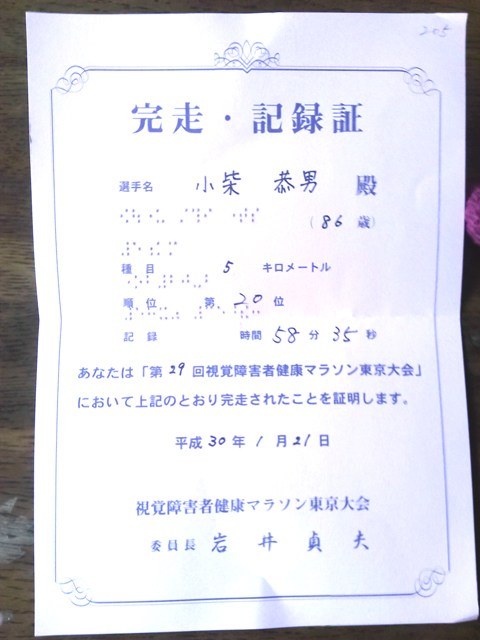 205
完走・記録証
選手名 小柴 恭男 殿
(86歳)
種目 5 キロメートル
順位 第 20 位
記録 時間 58 分 35 秒
あなたは「第29回視覚障害者健康マラソン東京大会」
において上記のとおり完走されたことを証明します。
平成30年1月21日
視覚障害者健康マラソン東京大会
委員長 岩井貞夫